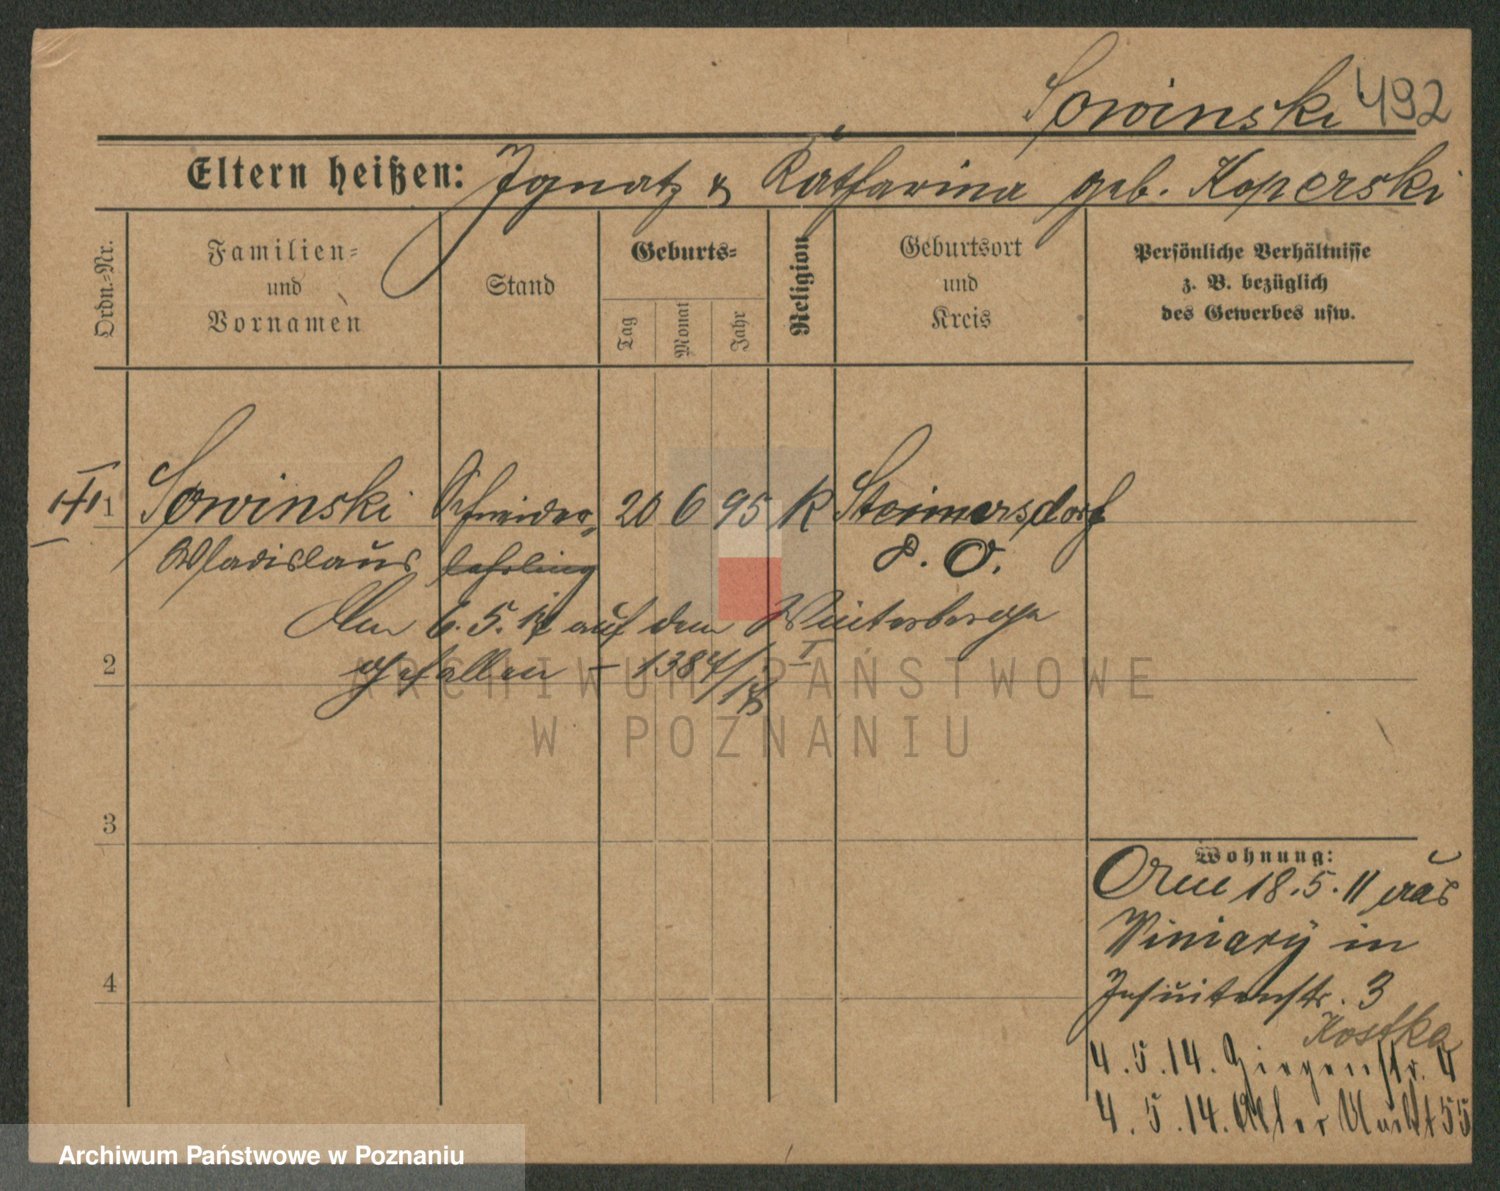 Sowinski 492
Eltern heißen: Ignatz & Katharina geb. Koperski
Ordn.-Nr.
Familien-
und
Vornamen
Stand
Geburts-
Tag
Monat
Jahr
Religion
Geburtsort
und
Kreis
Persönliche Verhältnisse
z. B. bezüglich
des Gewerbes usw.
1 Sowinski Schneider- 20 6 95 K Steimersdorf
Wladislaus lehrling P. O.
Am 6. 5. 17 auf dem Winterberge
2 gefallen – 1384/18 I
ARCHIWUM PAŃSTWOWE
W POZNANIU
3
Wohnung:
Am 18.5.11 aus
Winiary in
4 Jesuitenstr. 3
Kostka
4.5.14. Ziegenstr. 4
4.5.14. Alter Markt 55
Archiwum Państwowe w Poznaniu